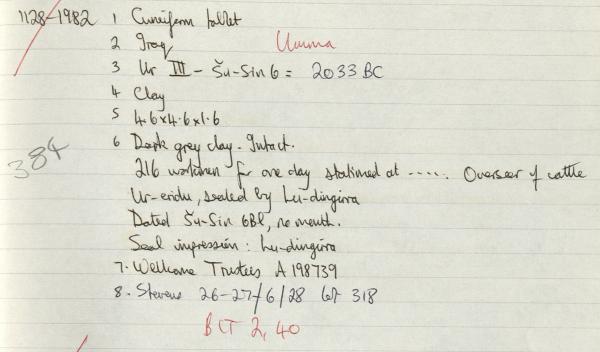 1128-1982 1 Cuneiform tablet
2 Iraq Umma
3 Ur III - Šu-Sin 6 = 2033 BC
4 Clay
5 4.6x4.6x1.6
384
6 Dark grey clay. Intact.
216 workmen for one day stationed at ..... Overseer of cattle
Ur-eridu, sealed by Lu-dingirra
Dated Šu-Sin 6BI, no month.
Seal impression: Lu-dingirra
7. Wellcome Trustees A 198739
8. Stevens 26-27/6/28 lot 318
BCT 2, 40